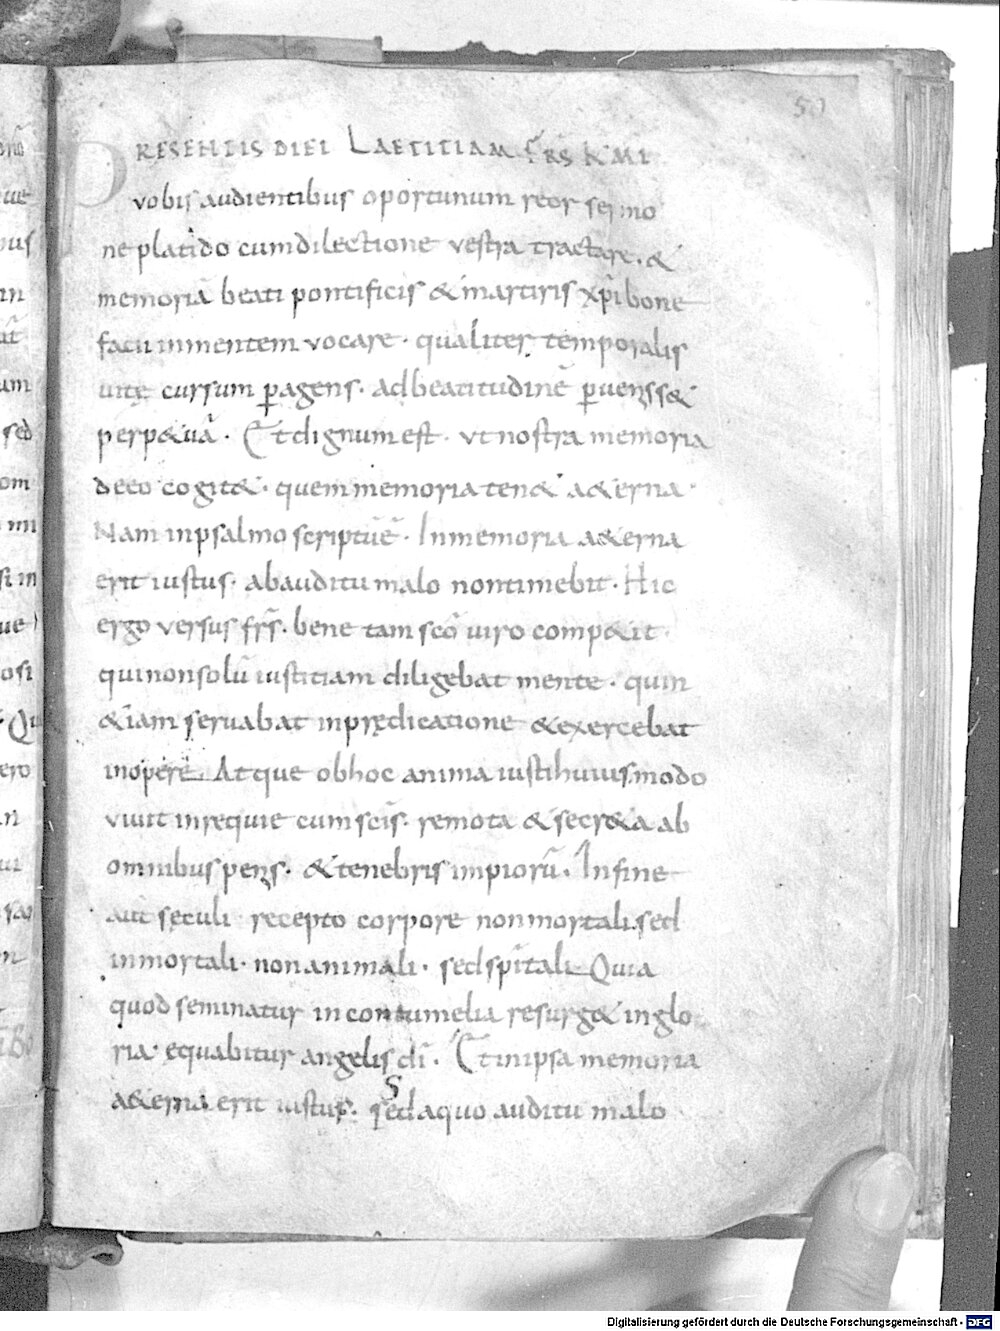 50
PRESENTIS DIEI LAETITIAM FR̄S K̄MI
vobis audientibus oportunum reor sermo
ne placido cum dilectione vestra tractare. &
memoriā beati pontificis & martiris xp̄i bone
facii in mentem vocare. qualiter temporalis
uitę cursum ꝑagens. ad beatitudinē ꝑuenss&
perp&uā. Et dignum est. ut nostra memoria
de eo cogit&. quem memoria ten& a&erna.
Nam in psalmo scriptū ē. In memoria a&erna
erit iustus. ab auditu malo non timebit. Hic
ergo versus fr̄s. bene tam sc̄o uiro comp&it.
qui non solū iustitiam diligebat mente. quin
&iam seruabat in prędicatione & exercebat
in opere. Atque ob hoc anima iusti huiusmodo
vivit in requie cum sc̄is. remota & secr&a ab
omnibus penis. & tenebris impiorū. In fine
aut seculi recepto corpore non mortali. sed
inmortali. non animali. sed sp̄itali. Quia
quod seminatur in contumelia resurg& in glo
ria. equabitur angelis d̄i. Et in ipsa memoria
a&erna erit iustus. Sed a quo auditu malo
Digitalisierung gefördert durch die Deutsche Forschungsgemeinschaft - DFG